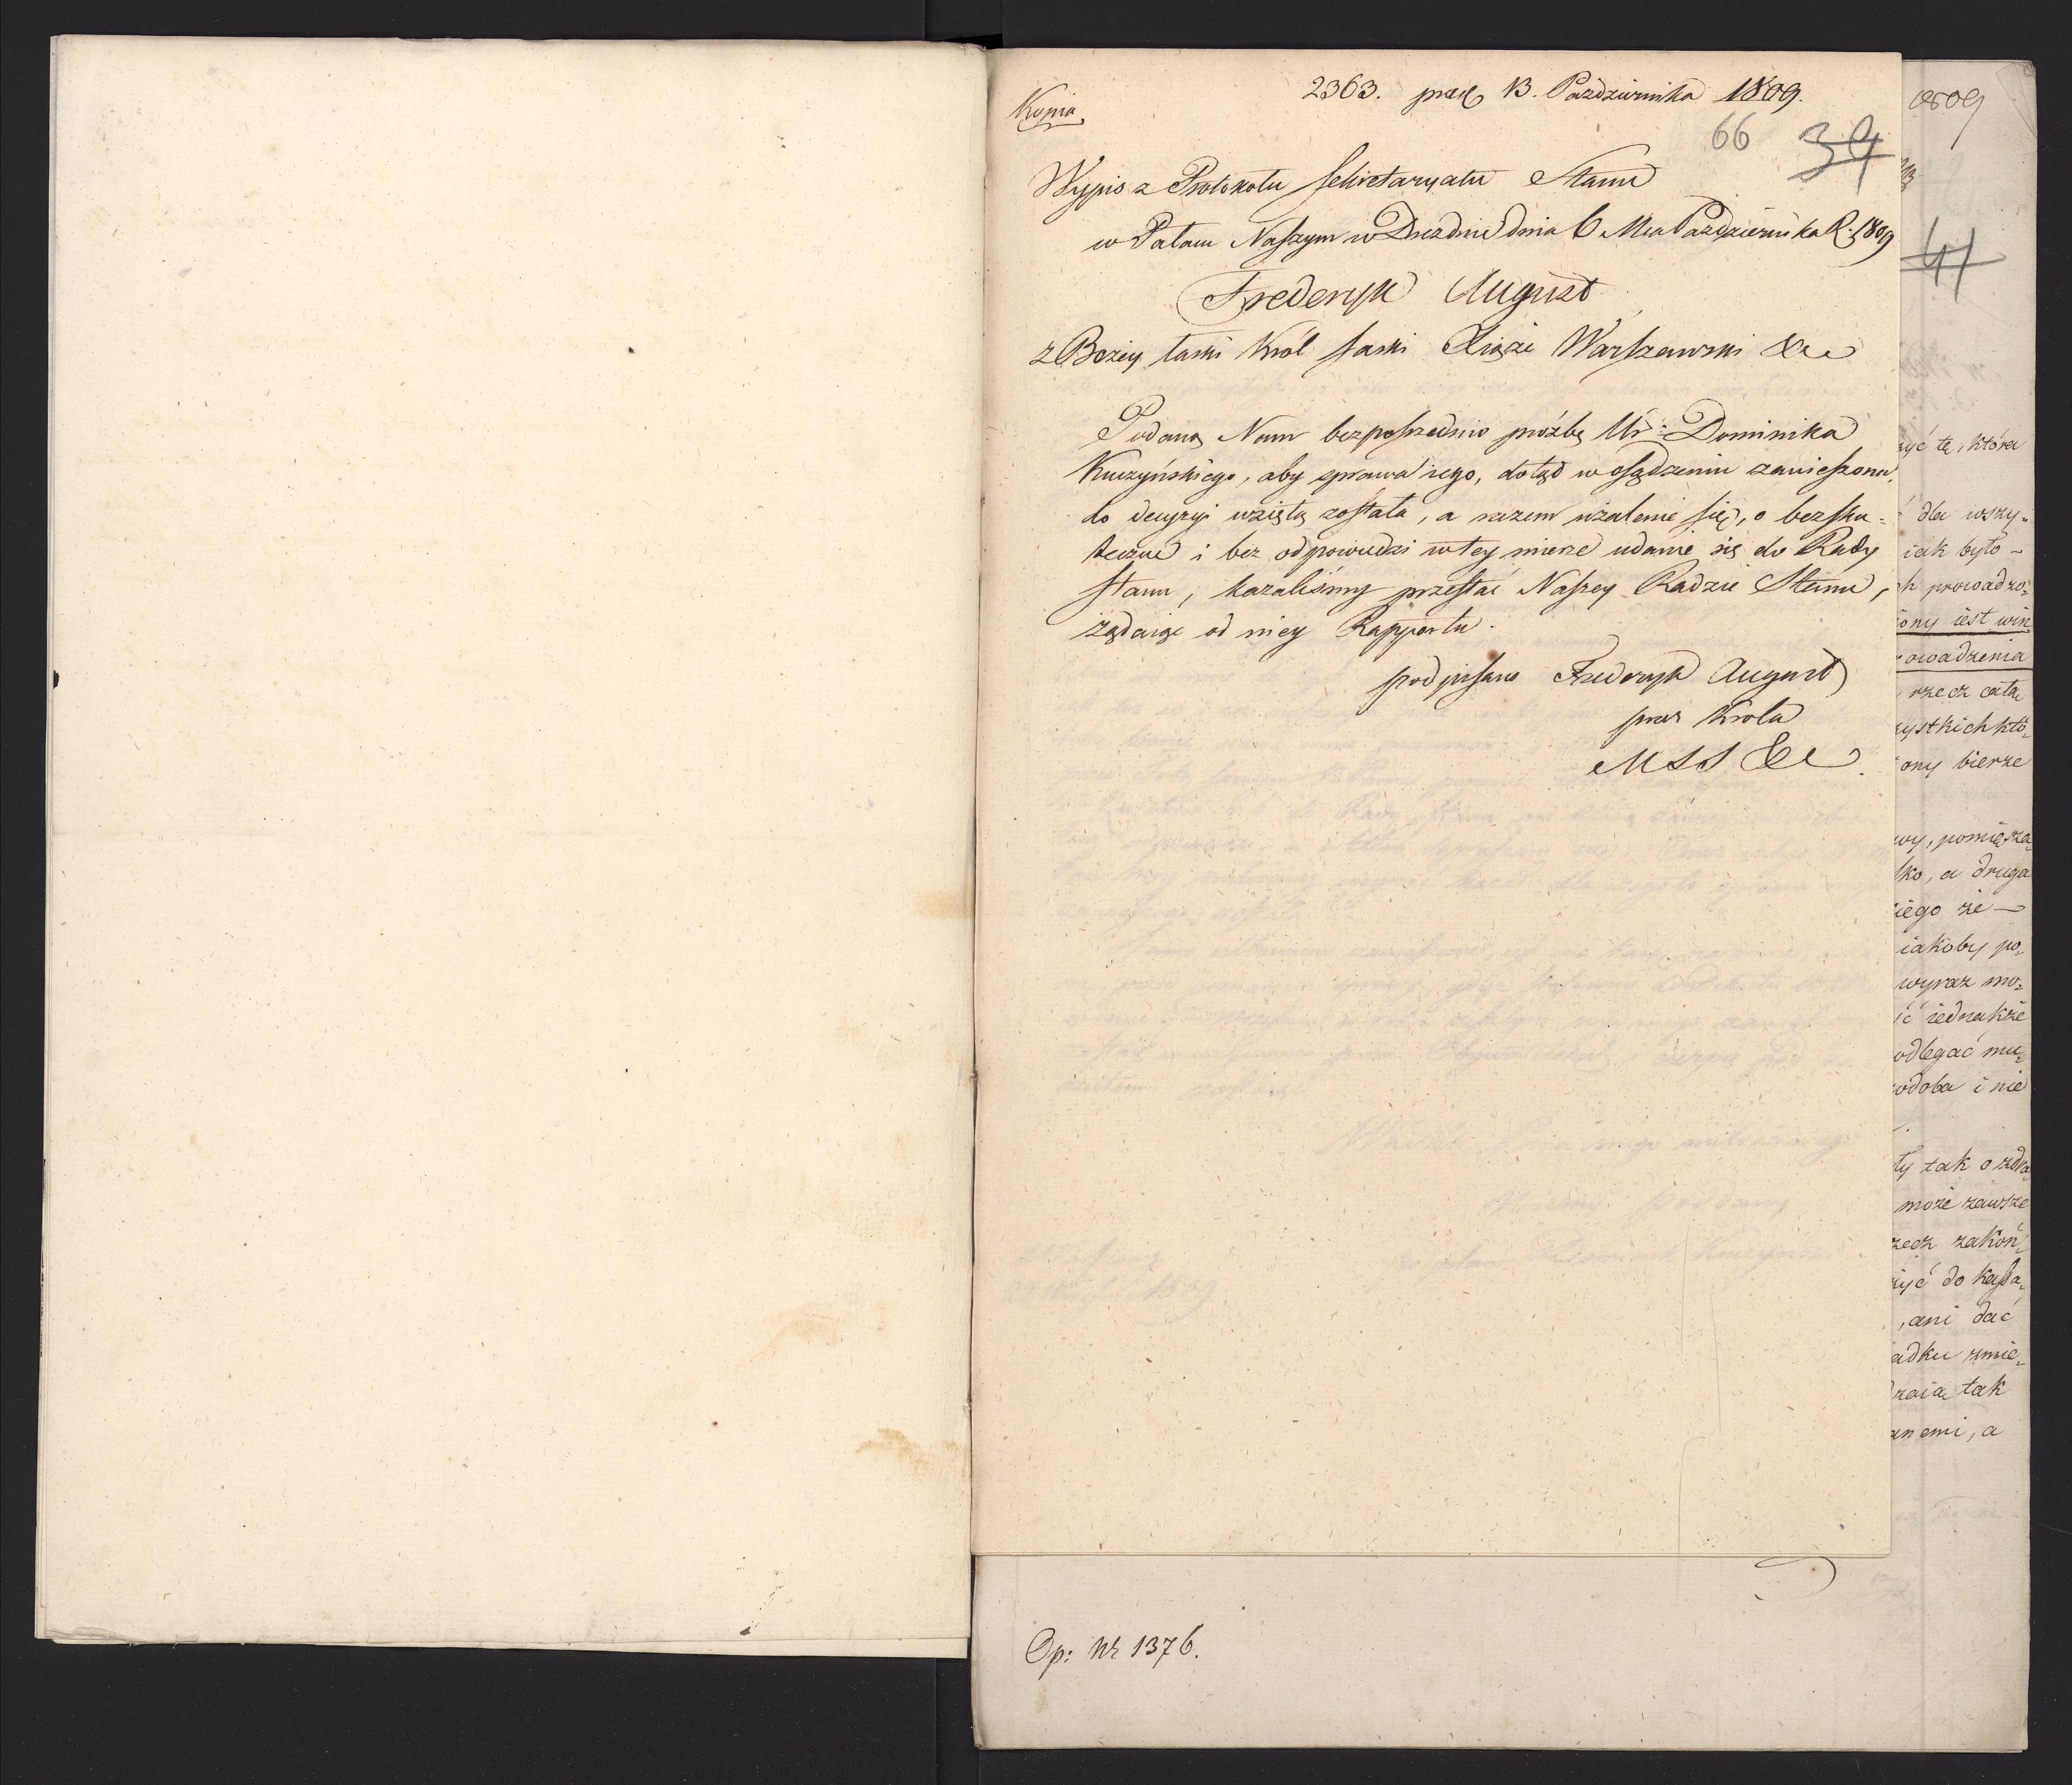 2363. praes 13. Pazdziernika 1809.
Kopia
66 39
Wypis z Protokołu Sekretaryatu Stanu
w Pałacu Naszym w Dreźnie dnia 6 Mca Pazdziernika R. 1809
Frederyk August
z Bożey łaski Król Saski Xiąże Warszawski &c
Podaną Nam bezposrzednio prożbę Ur: Dominika
Kuczyńskiego, aby sprawa iego, dotąd w osądzeniu zawieszona,
do decyzyi wziętą została, a razem użalenie się, o besku=
teczne i bez odpowiedzi w tey mierze udanie się do Rady
Stanu, kazaliśmy przesłać Naszey Radzie Stanu,
żądaiąc od niey Rapportu.
podpisano Frederyk August
przez Krola
MSS &c.
Op: Nr 1376.
1809
41
yć tę, która
dla wszy=
iak było –
h prowadzo=
ony iest win
owadzenia
rzecz cała
zystkich któ=
ony bierze
wy, pomięsza
lko, a druga
iego że —
iakoby po=
wyraz mo=
ć iednakże
odlegać mu=
odoba i nie
ły tak o zdra
może zawsze
zecz zakoń=
yć do kassa=
, ani dać
adku zmie=
zaia tak
anemi, a